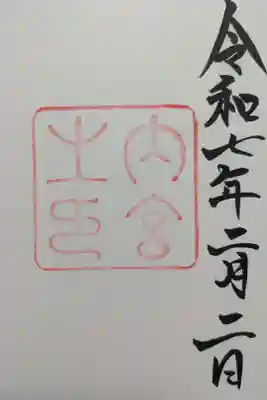 令和七年二月二日
内宮
之印